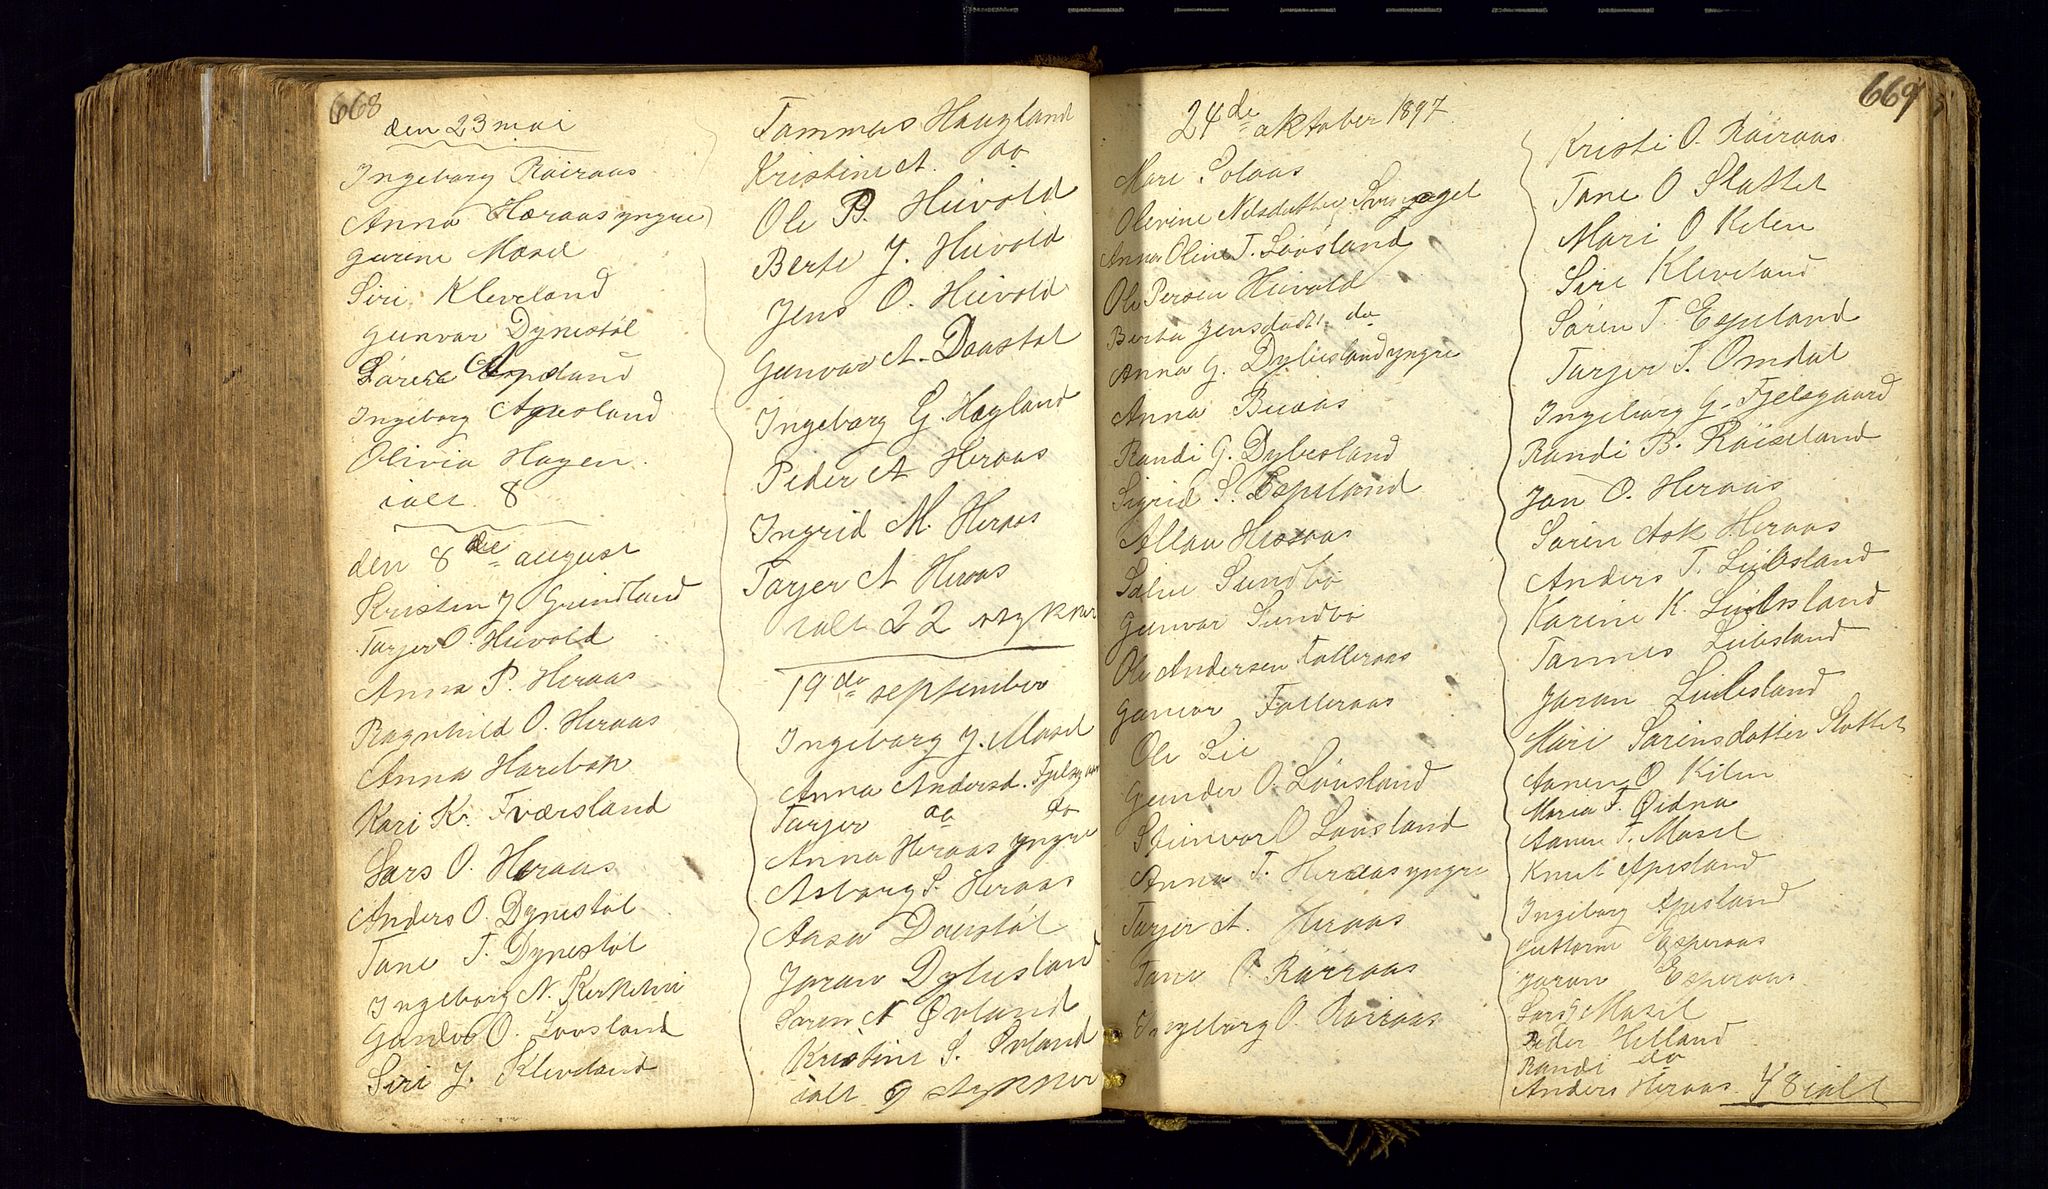 668
den 23 mai
Ingeborg Röiraas
Anna Hæraas yngre
gurine Mosel
Siri Kleveland
gunvor Dynestöl
Sören Espeland
Ingeborg Apesland
Olivia Hagen
ialt 8
den 8de august
Kristen J Grindland
Tarjer O. Heivold
Anna P. Heraas
Ragnhild O. Heraas
Anna Harebak
Kari K. Tværsland
Lars O. Heraas
Anders O. Dynestöl
Tane T. Dynestöl
Ingeborg N.
gunder O. Lovsland
Siri J. Kleveland
Tammas Haugland
Kristine A. do
Ole P. Heivold
Berte J. Heivold
Jens O. Heivold
Gunvor A. Daastöl
Ingeborg G Högland
Peder A Heraas
Ingrid M. Heraas
Tarjer A Heraas
ialt 22 stykker
19de september
Ingeborg J. Mosel
Anna Andersd. Fjelsgaar
Tarjer do do
Anna Heraas yngre
Asborg S. Heraas
Aasa Daastöl
Joran Dybesland
Soren A Øvland
Kristine S. Øvland
ialt 9 stykker
669
24de oktober 1897
Mari Solaas
Olivine Nilsdatter
Anna Oline T. Lovsland
Ole Persen Heivold
Berta Jensdatt. do
Anna G. Dybesland yngre
Anna Buraas
Randi G. Dybesland
Sigrid S. Espeland
Allau Heraas
Salve Sundbö
gunvor Sundbö
Ole Andersen Falleraas
gunvor Falleraas
Ole Lie
Gunder O. Lovsland
Steinvor O. Lovsland
Anna T. Heraas yngre
Tarjer A. Heraas
Tane Röiraas
Ingeborg O. Röiraas
Kristi O. Röiraas
Tane O Slottet
Mari O Kilen
Siri Kleveland
Sören T. Espeland
Tarjer T. Omdal
Ingeborg G. Fjelsgaard
Randi B. Röiseland
Jon O. Heraas
Sören Ask Heraas
Anders T. Leibsland
Karine K. Leibsland
Tannes Leibsland
Joran Leibsland
Mari Sörensdatter Slottet
Aanen O Kilen
Maria T. Øidna
Aanen T. Mosel
Knut Apesland
Ingeborg Apesland
guttorm Esperaas
Joran Esperaas
Lars Mosel
Peder Helland
Randi do
Anders Heraas 48 ialt